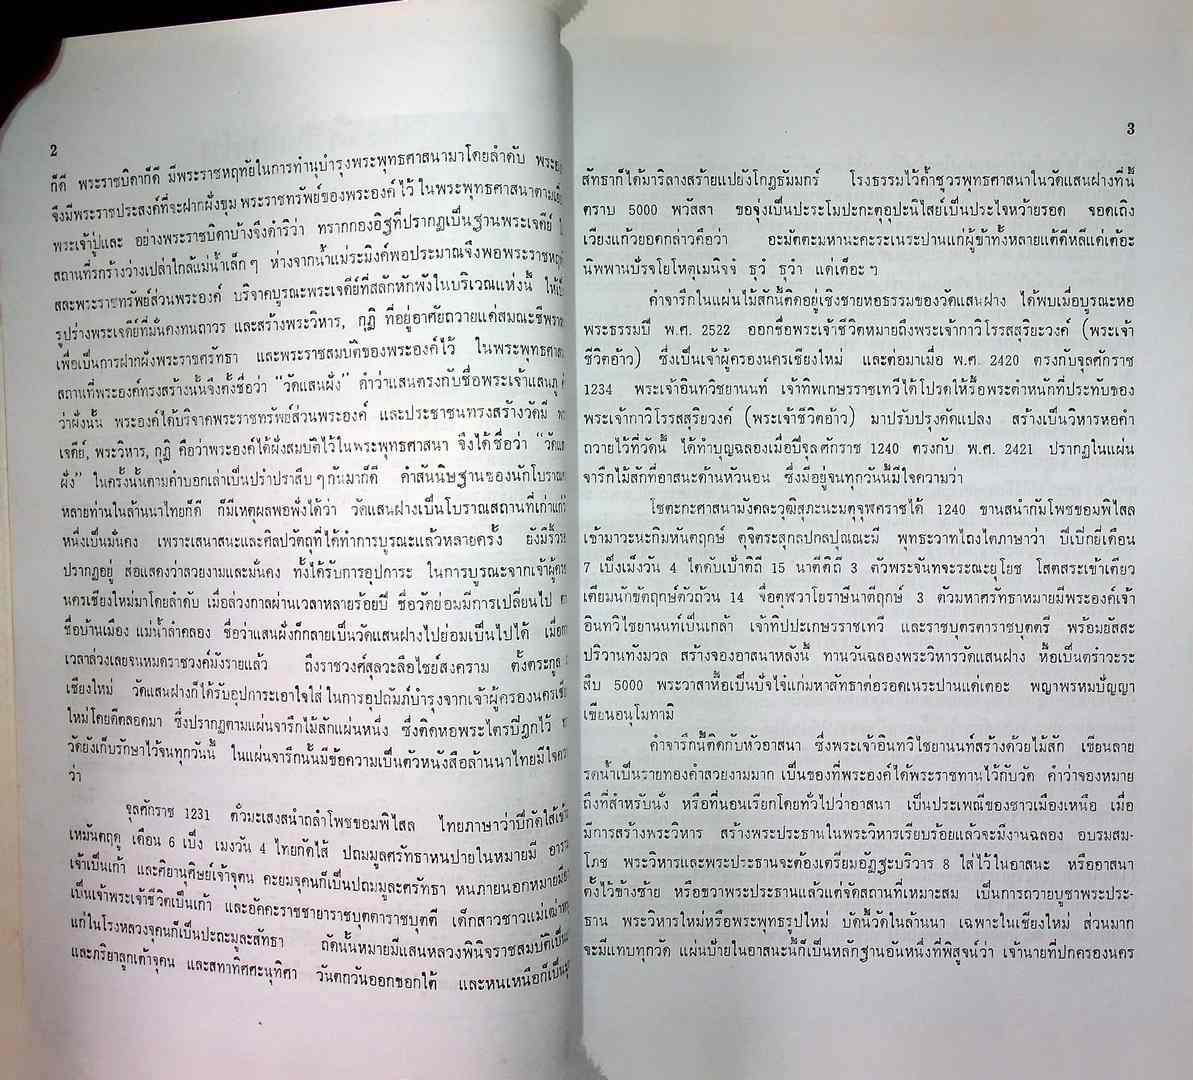 2
ก็ดี พระราชบิดาก็ดี มีพระราชหฤทัยในการทำนุบำรุงพระพุทธศาสนามาโดยลำดับ
จึงมีพระราชประสงค์ที่จะฝากฝังขุมพระราชทรัพย์ของพระองค์ไว้ ในพระพุทธศาสนาตาม
พระเจ้าปู่และ อย่างพระราชบิดาบ้างจึงดำริว่า ทรากกองอิฐที่ปรากฏเป็นฐานพระเจดีย์
สถานที่รกร้างว่างเปล่าใกล้แม่น้ำเล็กๆ ห่างจากน้ำแม่ระมิงค์พอประมาณจึงพอพระราชหฤ
สละพระราชทรัพย์ส่วนพระองค์ บริจาคบูรณะพระเจดีย์ที่สลักหักพังในบริเวณแห่งนี้ ให้
รูปร่างพระเจดีย์ที่มั่นคงทนถาวร และสร้างพระวิหาร, กุฏิ ที่อยู่อาศัยถวายแด่สมณะชีพรา
เพื่อเป็นการฝากฝังพระราชศรัทธา และพระราชสมบัติของพระองค์ไว้ ในพระพุทธศาส
สถานที่พระองค์ทรงสร้างนั้นจึงตั้งชื่อว่า "วัดแสนฝัง" คำว่าแสนตรงกับชื่อพระเจ้าแสนภู
ว่าฝังนั้น พระองค์ได้บริจาคพระราชทรัพย์ส่วนพระองค์ และประชาชนทรงสร้างวัดมี
เจดีย์, พระวิหาร, กุฏิ คือว่าพระองค์ได้ฝังสมบัติไว้ในพระพุทธศาสนา จึงได้ชื่อว่า "วัดแส
ฝัง" ในครั้งนั้นตามคำบอกเล่าเป็นปรำปราสืบๆกันมาก็ดี คำสันนิษฐานของนักโบราณ
หลายท่านในล้านนาไทยก็ดี ก็มีเหตุผลพอฟังได้ว่า วัดแสนฝางเป็นโบราณสถานที่เก่าแก่
หนึ่งเป็นมั่นคง เพราะเสนาสนะและศิลปวัตถุที่ได้ทำการบูรณะแล้วหลายครั้ง ยังมีริ้ว
ปรากฏอยู่ ส่อแสดงว่าสวยงามและมั่นคง ทั้งได้รับการอุปการะ ในการบูรณะจากเจ้าผู้
นครเชียงใหม่มาโดยลำดับ เมื่อล่วงกาลผ่านเวลาหลายร้อยปี ชื่อวัดย่อมมีการเปลี่ยนไป
ชื่อบ้านเมือง แม่น้ำลำคลอง ชื่อว่าแสนฝังก็กลายเป็นวัดแสนฝางไปย่อมเป็นไปได้ เมื่อ
เวลาล่วงเลยจนหมดราชวงค์มังรายแล้ว ถึงราชวงศ์สุลวะลือไชย์สงคราม ตั้งตระกูล
เชียงใหม่ วัดแสนฝางก็ได้รับอุปการะเอาใจใส่ ในการอุปถัมภ์บำรุงจากเจ้าผู้ครองนคร
ใหม่โดยดีตลอดมา ซึ่งปรากฏตามแผ่นจารึกไม้สักแผ่นหนึ่ง ซึ่งติดหอพระไตรปิฎกไว้
วัดยังเก็บรักษาไว้จนทุกวันนี้ ในแผ่นจารึกนั้นมีข้อความเป็นตัวหนังสือล้านนาไทยมีใจ
ว่า
จุลศักราช 1231 ตั๋วมะเสงสนำถลำโพชชอมพิไสล ไทยภาษาว่าปีกัดใส้
เหมันตฤดู เดือน 6 เป็ง เมงวัน 4 ไทยกัดไส้ ปถมมูลศรัทธาหนปายในหมายมี
เจ้าเป็นเก้า และศิยานุศิษย์เจ้าจุคน คะยมจุคนก็เป็นปถมมูละศรัทธา หนภายนอกหมาย
เป็นเจ้าพระเจ้าชีวิตเป็นเก้า และอัคคะราชชายาราชบุตตาราชบุตตี เด็กสาวชาวแม่
แก่ในโรงหลวงจุคนก็เป็นปะถะมูละสัทธา ถัดนั้นหมายมีแสนหลวงพินิจราชสมบัติเป็น
และภริยาลูกเต้าจุคน และสทาทิศศะนุทิศา วันตกวันออกขอกใต้ และหนเหนือก็เป็น
3
สัทธาก็ได้มาริสางสร้ายแปยังโกฏธัมมกร์ โรงธรรมไว้ค้ำชุวรพุทธศาสนาในวัดแสนฝางที่นี้
ตราบ 5000 พวัสสา ขอจุ่งเป็นปะระโมปะกะตุอุปะนิไสย์เป็นประไจหว้ายรอด จอดเถิง
เวียงแก้วยอดกล่าวคือว่า อะมัตตะมหานะคะระเนระปานแก่ผู้ข้าทั้งหลายแด่ดีหลีแด่เต๊อะ
นิพพานปัรจโยโหตุเมนิจจํ ธุวํ ธุวํา แด่เต๊อะฯ
คำจารึกในแผ่นไม้สักนี้ติดอยู่เชิงชายหอธรรมของวัดแสนฝาง ได้พบเมื่อบูรณะหอ
พระธรรมปี พ.ศ. 2522 ออกชื่อพระเจ้าชีวิตหมายถึงพระเจ้ากาวิโรรสสุริยะวงค์ (พระเจ้า
ชีวิตอ้าว) ซึ่งเป็นเจ้าผู้ครองนครเชียงใหม่ และต่อมาเมื่อ พ.ศ. 2420 ตรงกับจุลศักราช
1234 พระเจ้าอินทวิชยานนท์ เจ้าทิพเกษรราชเทวีได้โปรดให้รื้อพระตำหนักที่ประทับของ
พระเจ้ากาวิโรรสสุริยวงค์ (พระเจ้าชีวิตอ้าว) มาปรับปรุงดัดแปลง สร้างเป็นวิหารหอคำ
ถวายไว้ที่วัดนี้ ได้ทำบุญฉลองเมื่อปีจุลศักราช 1240 ตรงกับ พ.ศ. 2421 ปรากฏในแผ่น
จารึกไม้สักที่อาสนะด้านหัวนอน ซึ่งมีอยู่จนทุกวันนี้มีใจความว่า
โชตะกะศาสนามังคละวุฒิสุภะนะมตุจุฬคราชได้ 1240 ขานสนำกัมโพชขอมพิไสล
เข้ามาวะนะกิมหันตฤกษ์ ดุจิตระสุกลปกสปุณณะมี พุทธะวาทไถงไตภาษาว่า ปีเบิกยี่เดือน
7 เป็งเม็งวัน 4 ไดดับเป้าดิถี 15 นาตีดิถี 3 ตัวพระจันทจะระณะยุโยช โสตสระเข้าเดียว
เดียมนักขัตฤกษ์ตัวถ้วน 14 จื่อตุหวาโยราษีนาตีฤกษ์ 3 ตัวมหาศรัทธาหมายมีพระองค์เจ้า
อินทวิไชยานนท์เป็นเกล้า เจ้าทิปปะเกษรราชเทวี และราชบุตรดาราชบุตรี พร้อมยัสสะ
ปริวานทังมวล สร้างจองอาสนาหลังนี้ ทานวันฉลองพระวิหารวัดแสนฝาง หื้อเป็นตรำวะระ
สืบ 5000 พระวาสาหื้อเป็นปัจไจ๋แก่มหาสัทธาต่อรอดเนระปานแด่เตอะ พญาพรหมปัญญา
เขียนอนุโมทามิ
คำจารึกนี้ติดกับหัวอาสนา ซึ่งพระเจ้าอินทวิไชยานนท์สร้างด้วยไม้สัก เขียนลาย
รดน้ำเป็นรายทองคำสวยงามมาก เป็นของที่พระองค์ได้พระราชทานไว้กับวัด คำว่าจองหมาย
ถึงที่สำหรับนั่ง หรือที่นอนเรียกโดยทั่วไปว่าอาสนา เป็นประเพณีของชาวเมืองเหนือ เมื่อ
มีการสร้างพระวิหาร สร้างพระประธานในพระวิหารเรียบร้อยแล้วจะมีงานฉลอง อบรมสม-
โภช พระวิหารและพระประธานจะต้องเตรียมอัฏฐะบริวาร 8 ใส่ไว้ในอาสนะ หรืออาสนา
ตั้งไว้ข้างซ้าย หรือขวาพระประธานแล้วแต่จัดสถานที่เหมาะสม เป็นการถวายบูชาพระประ-
ธาน พระวิหารใหม่หรือพระพุทธรูปใหม่ บัดนี้วัดในล้านนา เฉพาะในเชียงใหม่ ส่วนมาก
จะมีแทบทุกวัด แผ่นป้ายในอาสนะนี้ก็เป็นหลักฐานอันหนึ่งที่พิสูจน์ว่า เจ้านายที่ปกครองนคร